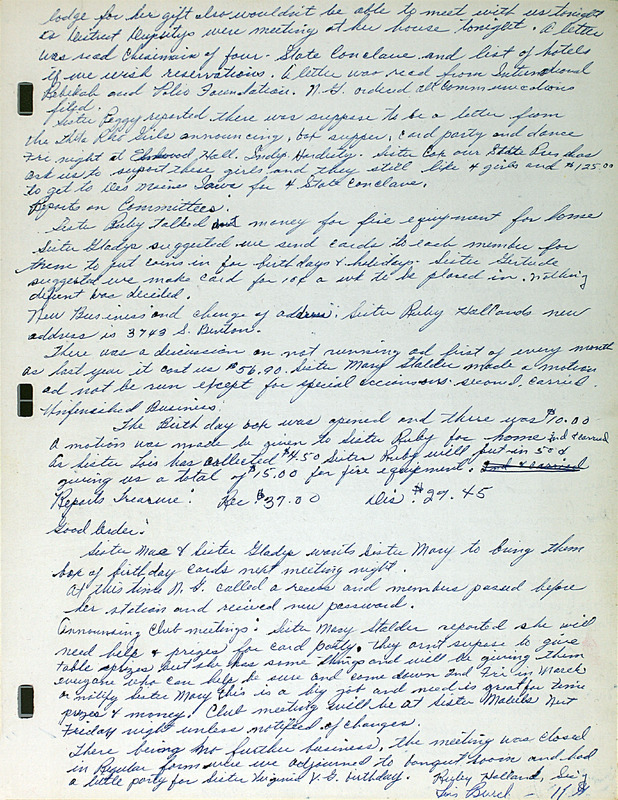 lodge for her gift also wouldn't be able to meet with us tonight
as District Deputys were meeting at her house tonight. A letter
was read Chairman of four State Conclave and list of hotels
if we wish reservations. A letter was read from International
Rebekah and Polio Foundation. N.G. ordered all communications
filed.
Sister Peggy reported there was suppose to be a letter from
the Theta Rho Girls announcing, box supper, card party and dance
Fri night at Hall. Indp. Hardisty. Sister Cox our State Pres has
ask us to suport these girls and they still like 4 girls and $125.00
to get to Des Moines Iowa for 4 State Conclave.
Reports on Committees:
Sister Ruby talked money for fire equipment for home
Sister Gladys suggested we send cards to each member for
them to put coins in for birthdays & holidays. Sister Gertrude
suggested we make card for 10¢ a wk to be placed in. Nothing
definet was decided.
New Business and change of address: Sister Ruby Hollands new
address is 3743 S. Benton.
There was a discussion on not running ad first of every month
as last year it cost us $56.90. Sister Mary Stalder made a motion
ad not be run except for special occasions. second, carried.
Unfinished Business:
The Birthday box was opened and there was $10.00
A motion was made be given to Sister Ruby for home 2nd carried
As Sister Lois has collected $4.50 Sister Ruby will put in 50¢
giving us a total of $15.00 for fire equipment. 2nd & carried
Reports Treasure: Rec $37.00 Dis. $27.45
Good Order:
Sister Mae & Sister Gladys wants Sister Mary to bring them
box of birthday cards next meeting night.
At this time N.G. called a recess and members passed before
her station and recived new password.
Announcing Club meetings: Sister Mary Stalder reported she will
need help & prizes for card party. They arnt supose to give
table prizes but she has some things and will be giving them
everyone who can help be sure and come down 2nd Fri in March
or notify Sister Mary this is a big job and need is great for time
prizes & money. Club meeting will be at Sister Mabels next
Friday night unless notified of changes.
There being no further business, the meeting was closed
in Regular form were we adjourned to banquet room and had
a little party for Sister Virginia V.G. birthday. Ruby Holland, Sec'y
Lois Burch - N.G.